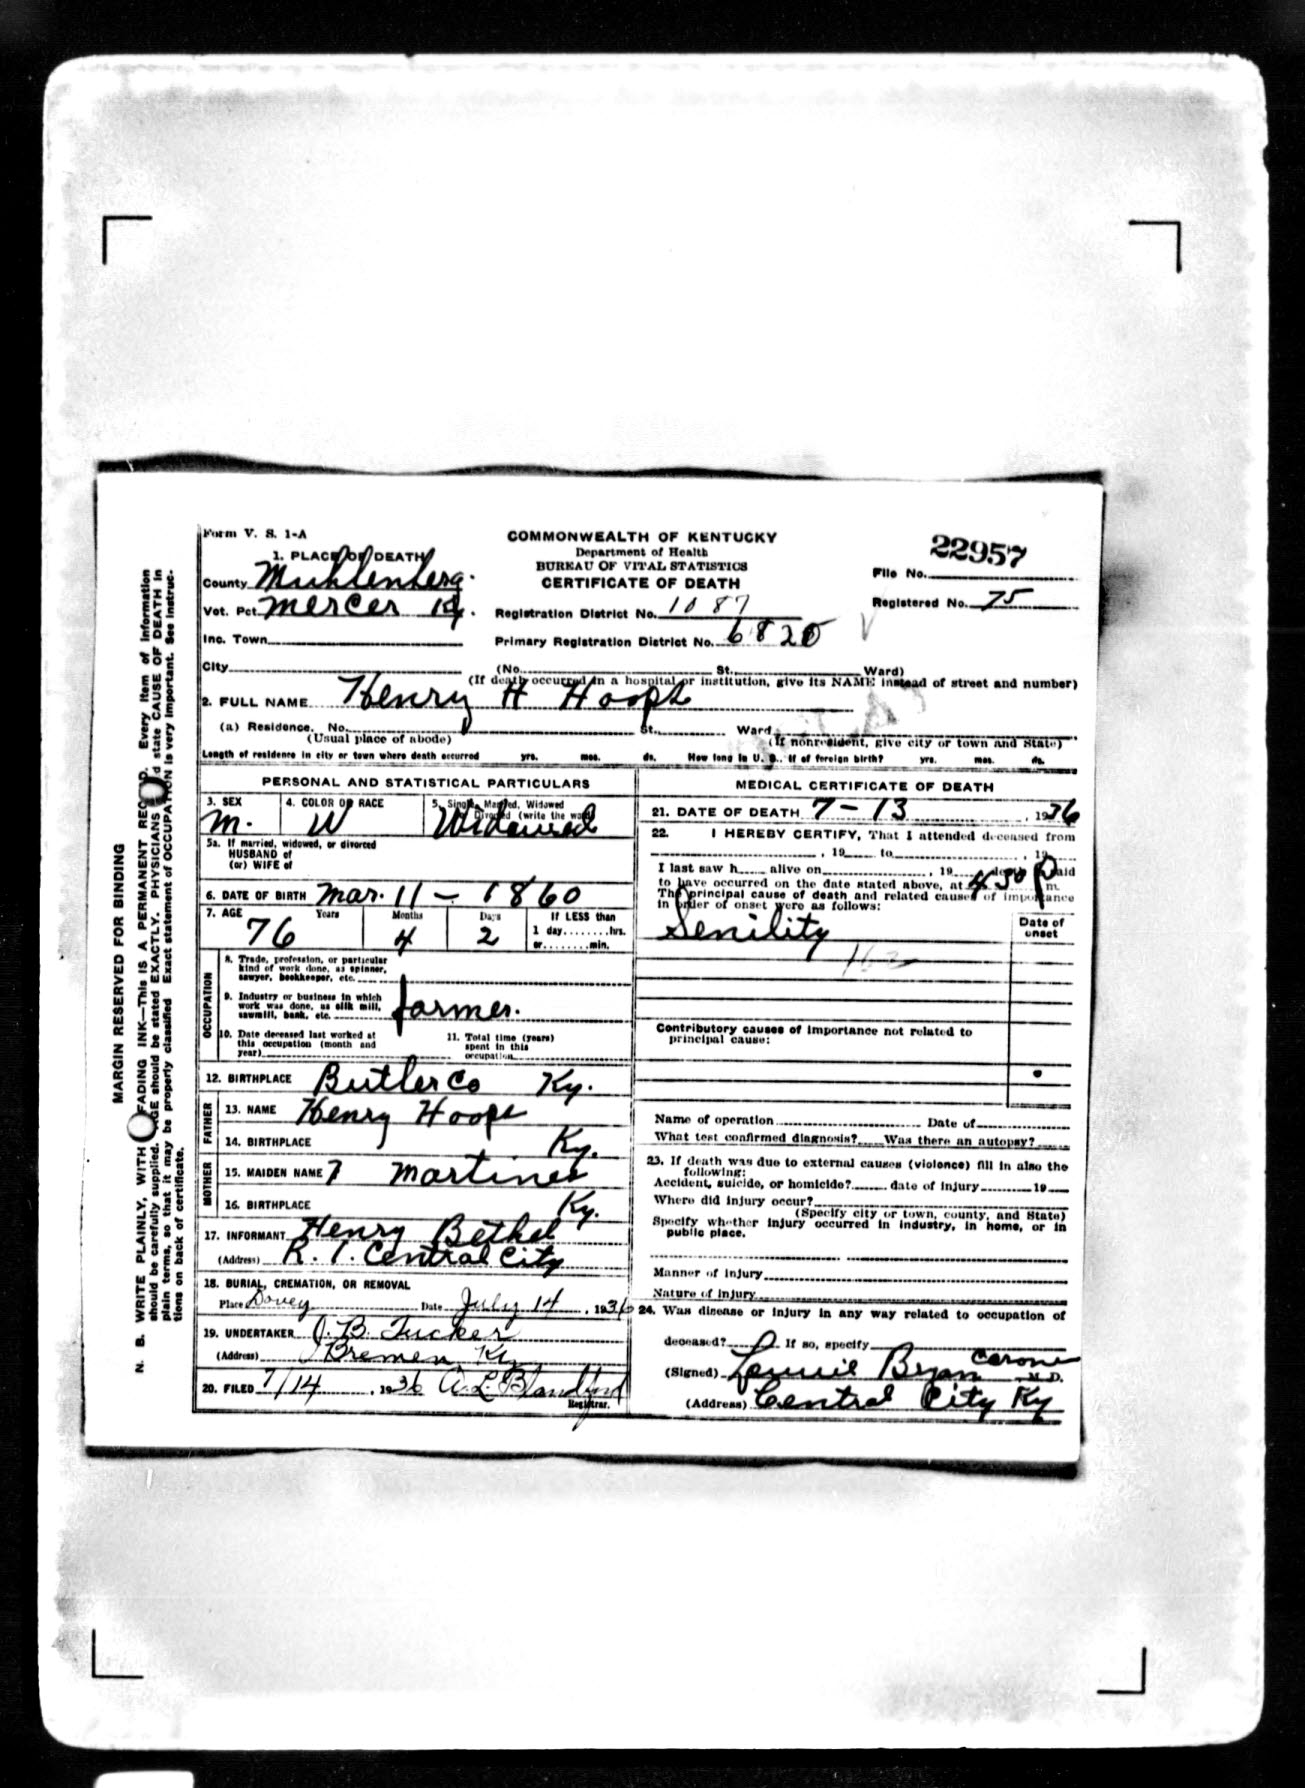 Form V. S. 1-A
COMMONWEALTH OF KENTUCKY
Department of Health
BUREAU OF VITAL STATISTICS
CERTIFICATE OF DEATH
22957
File No.
Registered No. 75
1. PLACE OF DEATH
County Muhlenberg.
Vot. Pct. Mercer Ky.
Inc. Town
City
Registration District No. 1087
Primary Registration District No. 6820
(No. St. Ward)
(If death occurred in a hospital or institution, give its NAME instead of street and number)
2. FULL NAME Henry H Hoops
(a) Residence. No. St. Ward
(Usual place of abode) (If nonresident, give city or town and State)
Length of residence in city or town where death occurred yrs. mos. ds. How long in U. S., if of foreign birth? yrs. mos. ds.
PERSONAL AND STATISTICAL PARTICULARS
3. SEX 4. COLOR OR RACE 5. Single, Married, Widowed
Divorced (write the word)
M. W Widowed
5a. If married, widowed, or divorced
HUSBAND of
(or) WIFE of
6. DATE OF BIRTH Mar. 11 - 1860
7. AGE Years Months Days If LESS than
76 4 2 1 day........hrs.
or........min.
OCCUPATION
8. Trade, profession, or particular
kind of work done, as spinner,
sawyer, bookkeeper, etc.
9. Industry or business in which
work was done, as silk mill,
sawmill, bank, etc. farmer.
10. Date deceased last worked at
this occupation (month and
year)
11. Total time (years)
spent in this
occupation
12. BIRTHPLACE Butler Co Ky.
FATHER
13. NAME Henry Hoops
14. BIRTHPLACE Ky.
MOTHER
15. MAIDEN NAME ? Martines
16. BIRTHPLACE Ky.
17. INFORMANT Henry Bethel
(Address) R. 1. Central City
18. BURIAL, CREMATION, OR REMOVAL
Place Dovey Date July 14, 1936
19. UNDERTAKER J. B. Tucker
(Address) Bremen Ky
20. FILED 7/14, 1936 A. L. Blandford
Registrar.
MEDICAL CERTIFICATE OF DEATH
21. DATE OF DEATH 7-13, 1936
22. I HEREBY CERTIFY, That I attended deceased from
, 19 to , 19
I last saw h alive on , 19 death said
to have occurred on the date stated above, at 4 30 P m.
The principal cause of death and related causes of importance
in order of onset were as follows:
Date of
onset
Senility
162
Contributory causes of importance not related to
principal cause:
Name of operation Date of
What test confirmed diagnosis? Was there an autopsy?
23. If death was due to external causes (violence) fill in also the
following:
Accident, suicide, or homicide? date of injury 19
Where did injury occur?
(Specify city or town, county, and State)
Specify whether injury occurred in industry, in home, or in
public place.
Manner of injury
Nature of injury
24. Was disease or injury in any way related to occupation of
deceased? If so, specify
(Signed) Bryan Coroner M.D.
(Address) Central City Ky
MARGIN RESERVED FOR BINDING
N. B. WRITE PLAINLY, WITH FADING INK—This IS A PERMANENT RECORD. Every item of information
should be carefully supplied. AGE should be stated EXACTLY. PHYSICIANS should state CAUSE OF DEATH in
plain terms, so that it may be properly classified Exact statement of OCCUPATION is very important. See instruc-
tions on back of certificate.